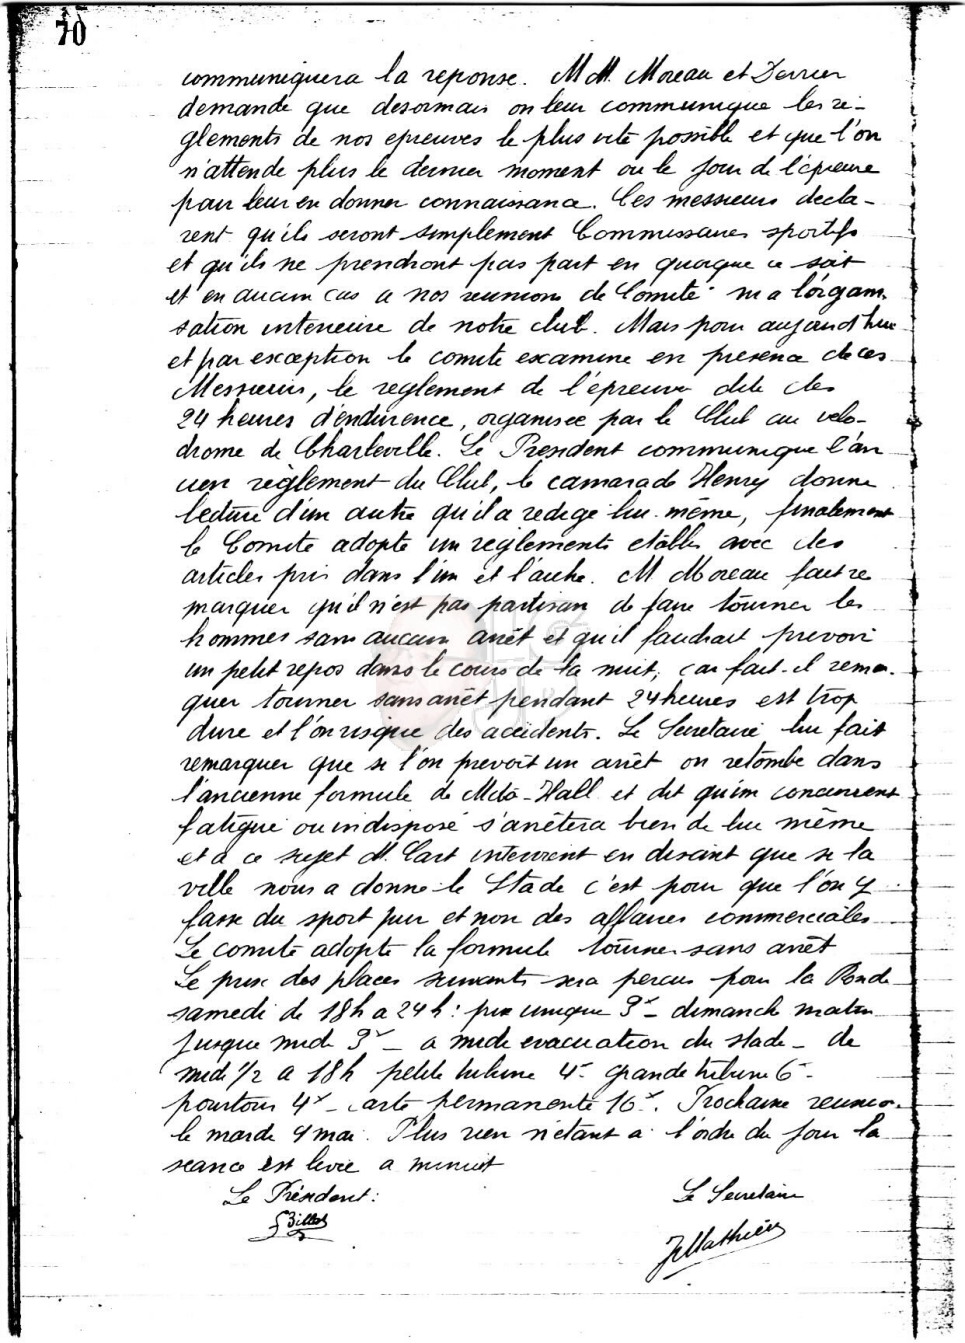 70
communiquera la reponse. M M. Moreau et Derrier
demande que desormais on leur communique les ré-
glements de nos epreuves le plus vite possible et que l'on
n'attende plus le dernier moment ou le jour de l'épreuve
pour leur en donner connaissance. Ces messieurs decla-
rent qu'ils seront simplement Commissaires sportifs
et qu'ils ne prendront pas part en quoique ce soit
et en aucun cas a nos reunions de Comité ni a l'organi-
sation interieure de notre club. Mais pour aujourd'hui
et par exception le comite examine en presence de ces
Messieurs, le reglement de l'épreuve dite des
24 heures d'endurence, organisee par le Club au velo-
drome de Charleville. Le President communique l'an
cien règlement du Club, le camarade Henry donne
lecture d'un autre qu'il a redigé lui-même, finalement
le Comite adopte un reglements etabli avec des
articles pris dans l'un et l'autre. M. Moreau fait re
marquer qu'il n'est pas partisan de faire tourner les
hommes sans aucun arrêt et qu'il faudrait prevoir
un petit repos dans le cours de la nuit, car fait-il remar-
quer tourner sans arrêt pendant 24 heures est trop
dure et l'on risque des accidents. Le Secretaire lui fait
remarquer que si l'on prevoit un arrêt on retombe dans
l'ancienne formule de Moto-Hall et dit qu'un concurrent
fatigué ou indisposé s'arrêtera bien de lui même
et a ce sujet M. Cart intervient en disant que si la
ville nous a donné le Stade c'est pour que l'on y
fasse du sport pur et non des affaires commerciales
Le comité adopte la formule tourner sans arrêt
Le prix des places suivants sera perçus pour la Ronde
samedi de 18h a 24h : prix unique 3f - dimanche matin
jusque midi 3f - a midi evacuation du stade - de
midi 1/2 a 18h petite tribune 4f- grande tribune 6f-
pourtour 4f - carte permanente 16f. Prochaine reunion
le mardi 4 mai. Plus rien n'etant a l'ordre du jour la
seance est levée a minuit
Le Président : Le Secretaire
Billot
J Mathieu